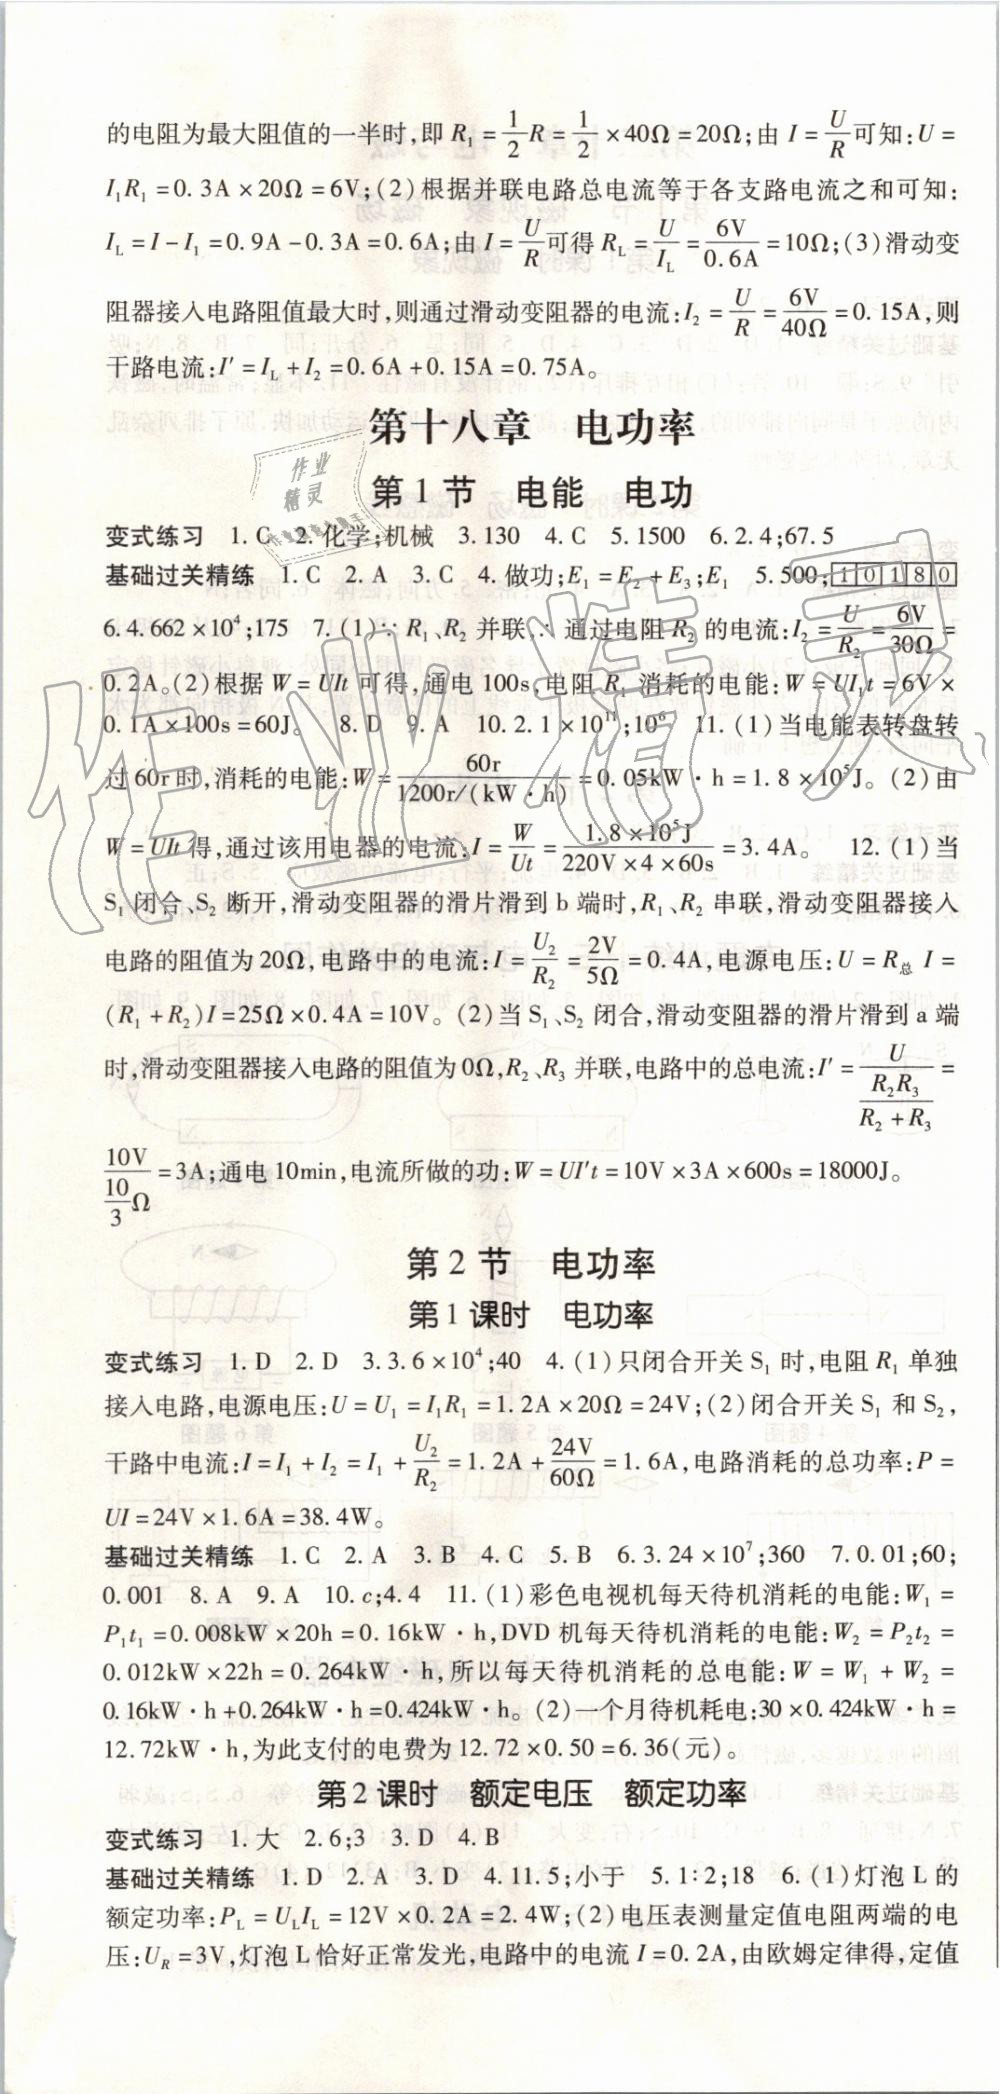 的电阻为最大阻值的一半时,即R₁=1/2R=1/2×40Ω=20Ω;由I=U/R可知:U=
I₁R₁=0.3A×20Ω=6V;(2)根据并联电路总电流等于各支路电流之和可知:
I_L=I-I₁=0.9A-0.3A=0.6A;由I=U/R可得R_L=U/I_L=6V/0.6A=10Ω;(3)滑动变
阻器接入电路阻值最大时,则通过滑动变阻器的电流:I₂=U/R=6V/40Ω=0.15A,则
干路电流:I′=I_L+I₂=0.6A+0.15A=0.75A。
第十八章 电功率
第1节 电能 电功
变式练习 1.C 2.化学;机械 3.130 4.C 5.1500 6.2.4;67.5
基础过关精练 1.C 2.A 3.C 4.做功;E₁=E₂+E₃;E₁ 5.500;1 0 1 8 0
6.4.662×10⁴;175 7.(1)∵R₁、R₂并联,∴通过电阻R₂的电流:I₂=U/R₂=6V/30Ω=
0.2A。(2)根据W=UIt可得,通电100s,电阻R₁消耗的电能:W=UI₁t=6V×
0.1A×100s=60J。 8.D 9.A 10.2.1×10¹¹;10⁶ 11.(1)当电能表转盘转
过60r时,消耗的电能:W=60r/1200r/(kW·h)=0.05kW·h=1.8×10⁵J。(2)由
W=UIt得,通过该用电器的电流:I=W/Ut=1.8×10⁵J/220V×4×60s=3.4A。 12.(1)当
S₁闭合、S₂断开,滑动变阻器的滑片滑到b端时,R₁、R₂串联,滑动变阻器接入
电路的阻值为20Ω,电路中的电流:I=U₂/R₂=2V/5Ω=0.4A,电源电压:U=R总I=
(R₁+R₂)I=25Ω×0.4A=10V。(2)当S₁、S₂闭合,滑动变阻器的滑片滑到a端
时,滑动变阻器接入电路的阻值为0Ω,R₂、R₃并联,电路中的总电流:I′=U/(R₂R₃/(R₂+R₃))=
10V/(10/3 Ω)=3A;通电10min,电流所做的功:W=UI′t=10V×3A×600s=18000J。
第2节 电功率
第1课时 电功率
变式练习 1.D 2.D 3.3.6×10⁴;40 4.(1)只闭合开关S₁时,电阻R₁单独
接入电路,电源电压:U=U₁=I₁R₁=1.2A×20Ω=24V;(2)闭合开关S₁和S₂,
干路中电流:I=I₁+I₂=I₁+U₂/R₂=1.2A+24V/60Ω=1.6A,电路消耗的总功率:P=
UI=24V×1.6A=38.4W。
基础过关精练 1.C 2.A 3.B 4.C 5.B 6.3.24×10⁷;360 7.0.01;60;
0.001 8.A 9.A 10.c;4.4 11.(1)彩色电视机每天待机消耗的电能:W₁=
P₁t₁=0.008kW×20h=0.16kW·h,DVD机每天待机消耗的电能:W₂=P₂t₂=
0.012kW×22h=0.264kW·h,所以每天待机消耗的总电能:W=W₁+W₂=
0.16kW·h+0.264kW·h=0.424kW·h。(2)一个月待机耗电:30×0.424kW·h=
12.72kW·h,为此支付的电费为12.72×0.50=6.36(元)。
第2课时 额定电压 额定功率
变式练习 1.大 2.6;3 3.D 4.B
基础过关精练 1.D 2.A 3.D 4.11.5;小于 5.1:2;18 6.(1)灯泡L的
额定功率:P_L=U_LI_L=12V×0.2A=2.4W;(2)电压表测量定值电阻两端的电
压:U_R=3V,灯泡L恰好正常发光,电路中的电流I=0.2A,由欧姆定律得,定值
作业精灵
作业
精灵